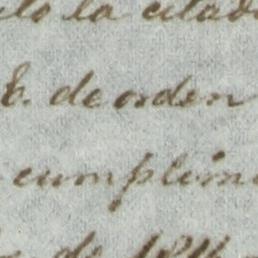 la citad
E. de orden
cumplim
de